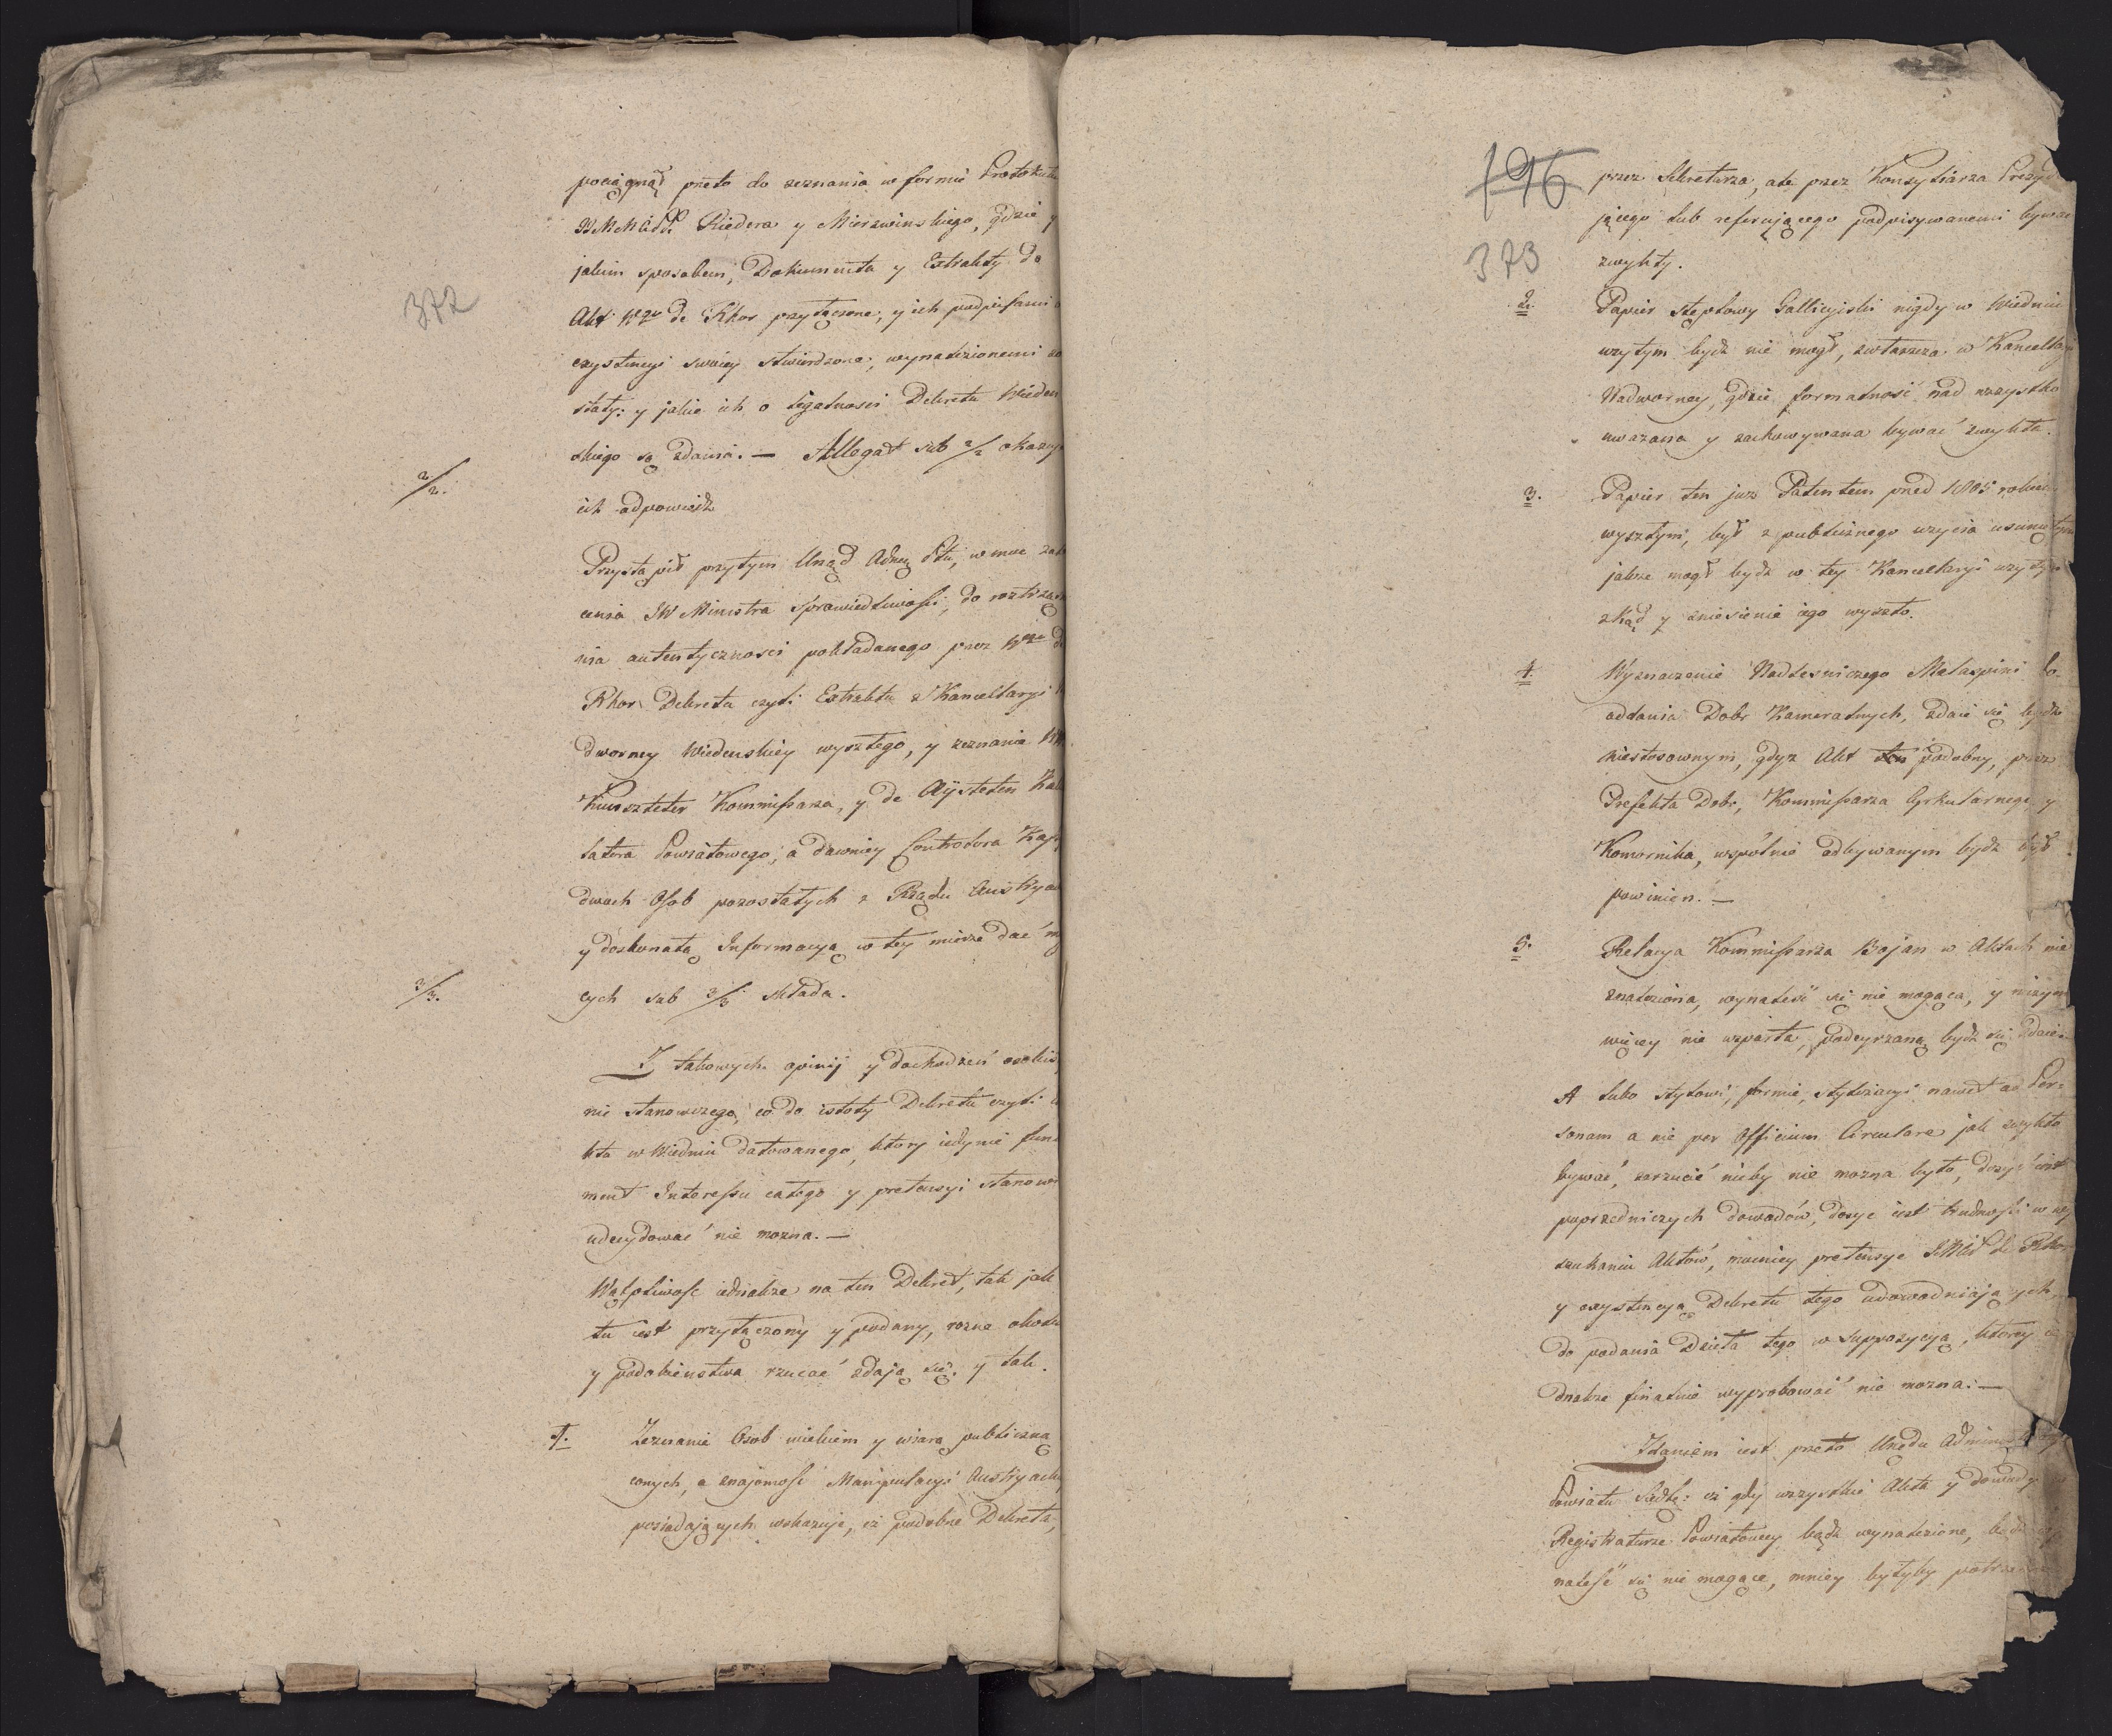 372
pociągnął przeto do zeznania w formie Protokułu
Riedera y Mierzwinskiego, gdzie y
jakim sposobem, Dokumenta y Extrakty do
Akt Wgo de Rhor przyłączone, y ich podpisami
exystencyi swoiey stwierdzone, wynalezionemi zo
stały: y jakie ich o legalnosci Dekretu Wieden
skiego są zdania. — Allegat sub 2/2 okazuje
2/2.
ich odpowiedz
Przystąpił przytym Urząd Adny Pttu, w moc zale
cenia JW Ministra Sprawiedliwosci, do roztrząśn
nia autentycznosci pokładanego przez Wgo d
Rhor Dekretu czyli Extraktu z Kancellaryi
dworney Wiedenskiey wyszłego, y zeznania
Kommissarza, y de Aystetten Kal
latora Powiatowego, a dawniey Controlora Kassy
dwoch Osob pozostałych z Rządu Austryac
y doskonałą Informacyą w tey mierze dać mog
cych sub 3/3 składa.
3/3.
Z takowych opinij y dochodzeń osobis
nic stanowczego, co do istoty Dekretu czyli
kta w Wiedniu datowanego, ktory iedynie funda
ment Interessu całego y pretensyi stanowi
udecydować nie mozna. —
Wątpliwosc iednakze na ten Dekret, tak jak
tu iest przyłączony y podany, rozne okoli
y podobienstwa rzucać zdają się. y tak.
1. Zeznanie Osob wiekiem y wiarą publiczną
conych, a znajomosc Manipulacyi Austryack
posiadających wskazuje, iz podobne Dekreta,
196
373
przez Sekretarza, ale przez Konsyliarza Prezyd
jącego lub referującego podpisywanemi bywać
zwykły.
2. Papier stęplowy Gallicyiski nigdy w Wiedniu
uzytym bydz nie mogł, zwłaszcza w Kancellaryi
Nadworney, gdzie formalność nad wszystko
uwazana y zachowywana bywać zwykła.
3. Papier ten juz Patentem przed 1805 rokiem
wyszłym, był z publicznego uzycia usuniętym
jakze mogł bydz w tey Kancellaryi uzytym
zkąd y zniesienie iego wyszło.
4. Wyznaczenie Nadlesniczego Malaspini do
oddania Dobr Kameralnych, zdaie się bydz
niestosownym, gdyz Akt ten podobny, przez
Prefekta Dobr, Kommissarza Cyrkularnego y
Komornika, wspolnie odbywanym bydz był
powinien. —
5. Relacya Kommissarza Bojan w Aktach nie
znaleziona, wynaleść się nie mogąca, y niczym
więcey nie wsparta, podeyrzaną bydz się zdaie.
A lubo stylowi, formie, stylizacyi nawet ad Per-
sonam a nie per Officium Circulare jak zwykło
bywać, zarzucić nicby nie mozna było, dosyć iest
poprzedniczych dowodów, dosyc iest trudnosci w wy
szukaniu Aktów, mocniey pretensye de Rhor
y exystencyą Dekretu tego udowodniających,
do podania Dzieła tego w suppozycyą, ktorey ie
dnakze finalnie wyprobować nie mozna: —
Zdaniem iest przeto Urzędu Administracyi
Powiatu Siedl: iz gdy wszystkie Akta y dowody
Registraturze Powiatowey bądz wynalezione, bądz
naleść się nie mogące, mniey byłyby potrzeb